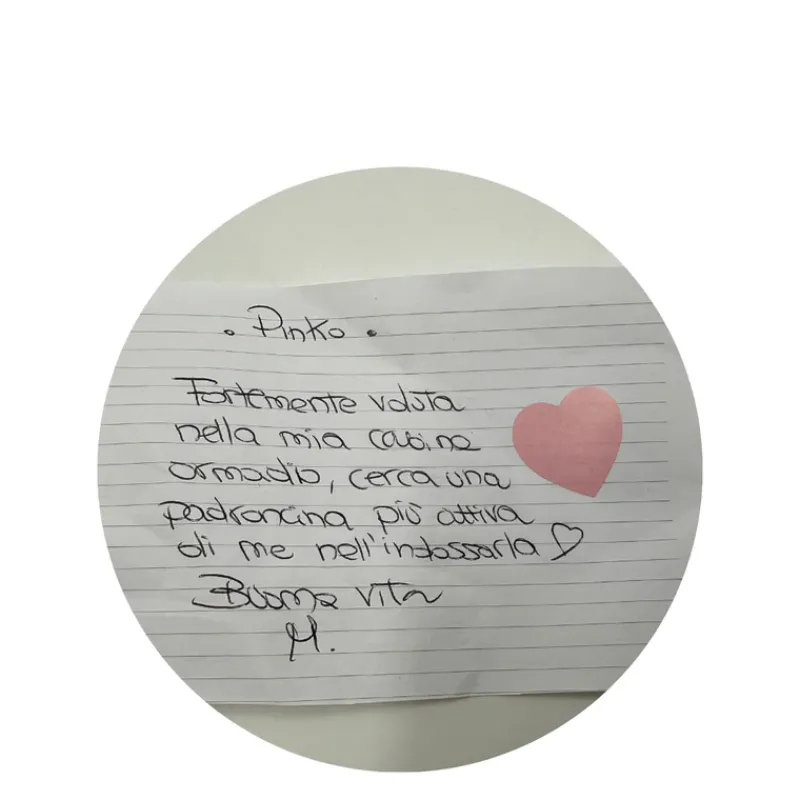 . Pinko .
Fortemente voluta
nella mia cabina
armadio, cerca una
padroncina più attiva
di me nell'indossarla ♡
Buona vita
M.